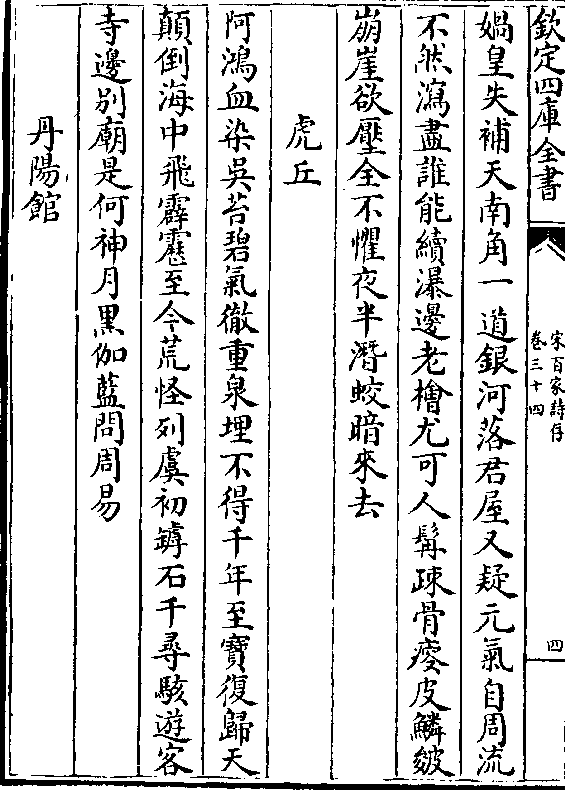 欽定四庫全書
宋百家詩存
卷三十四
四
媧皇失補天南角一道銀河落君屋又疑元氣自周流
不然瀉盡誰能續瀑邊老檜尤可人髯疎骨瘦皮鱗皴
崩崖欲壓全不懼夜半潛蛟暗來去
虎丘
阿鴻血染吳苔碧氣徹重泉埋不得千年至寶復歸天
顛倒海中飛霹靂至今荒怪列虞初罅石千尋駭遊客
寺邊別廟是何神月黑伽藍問周易
丹陽館